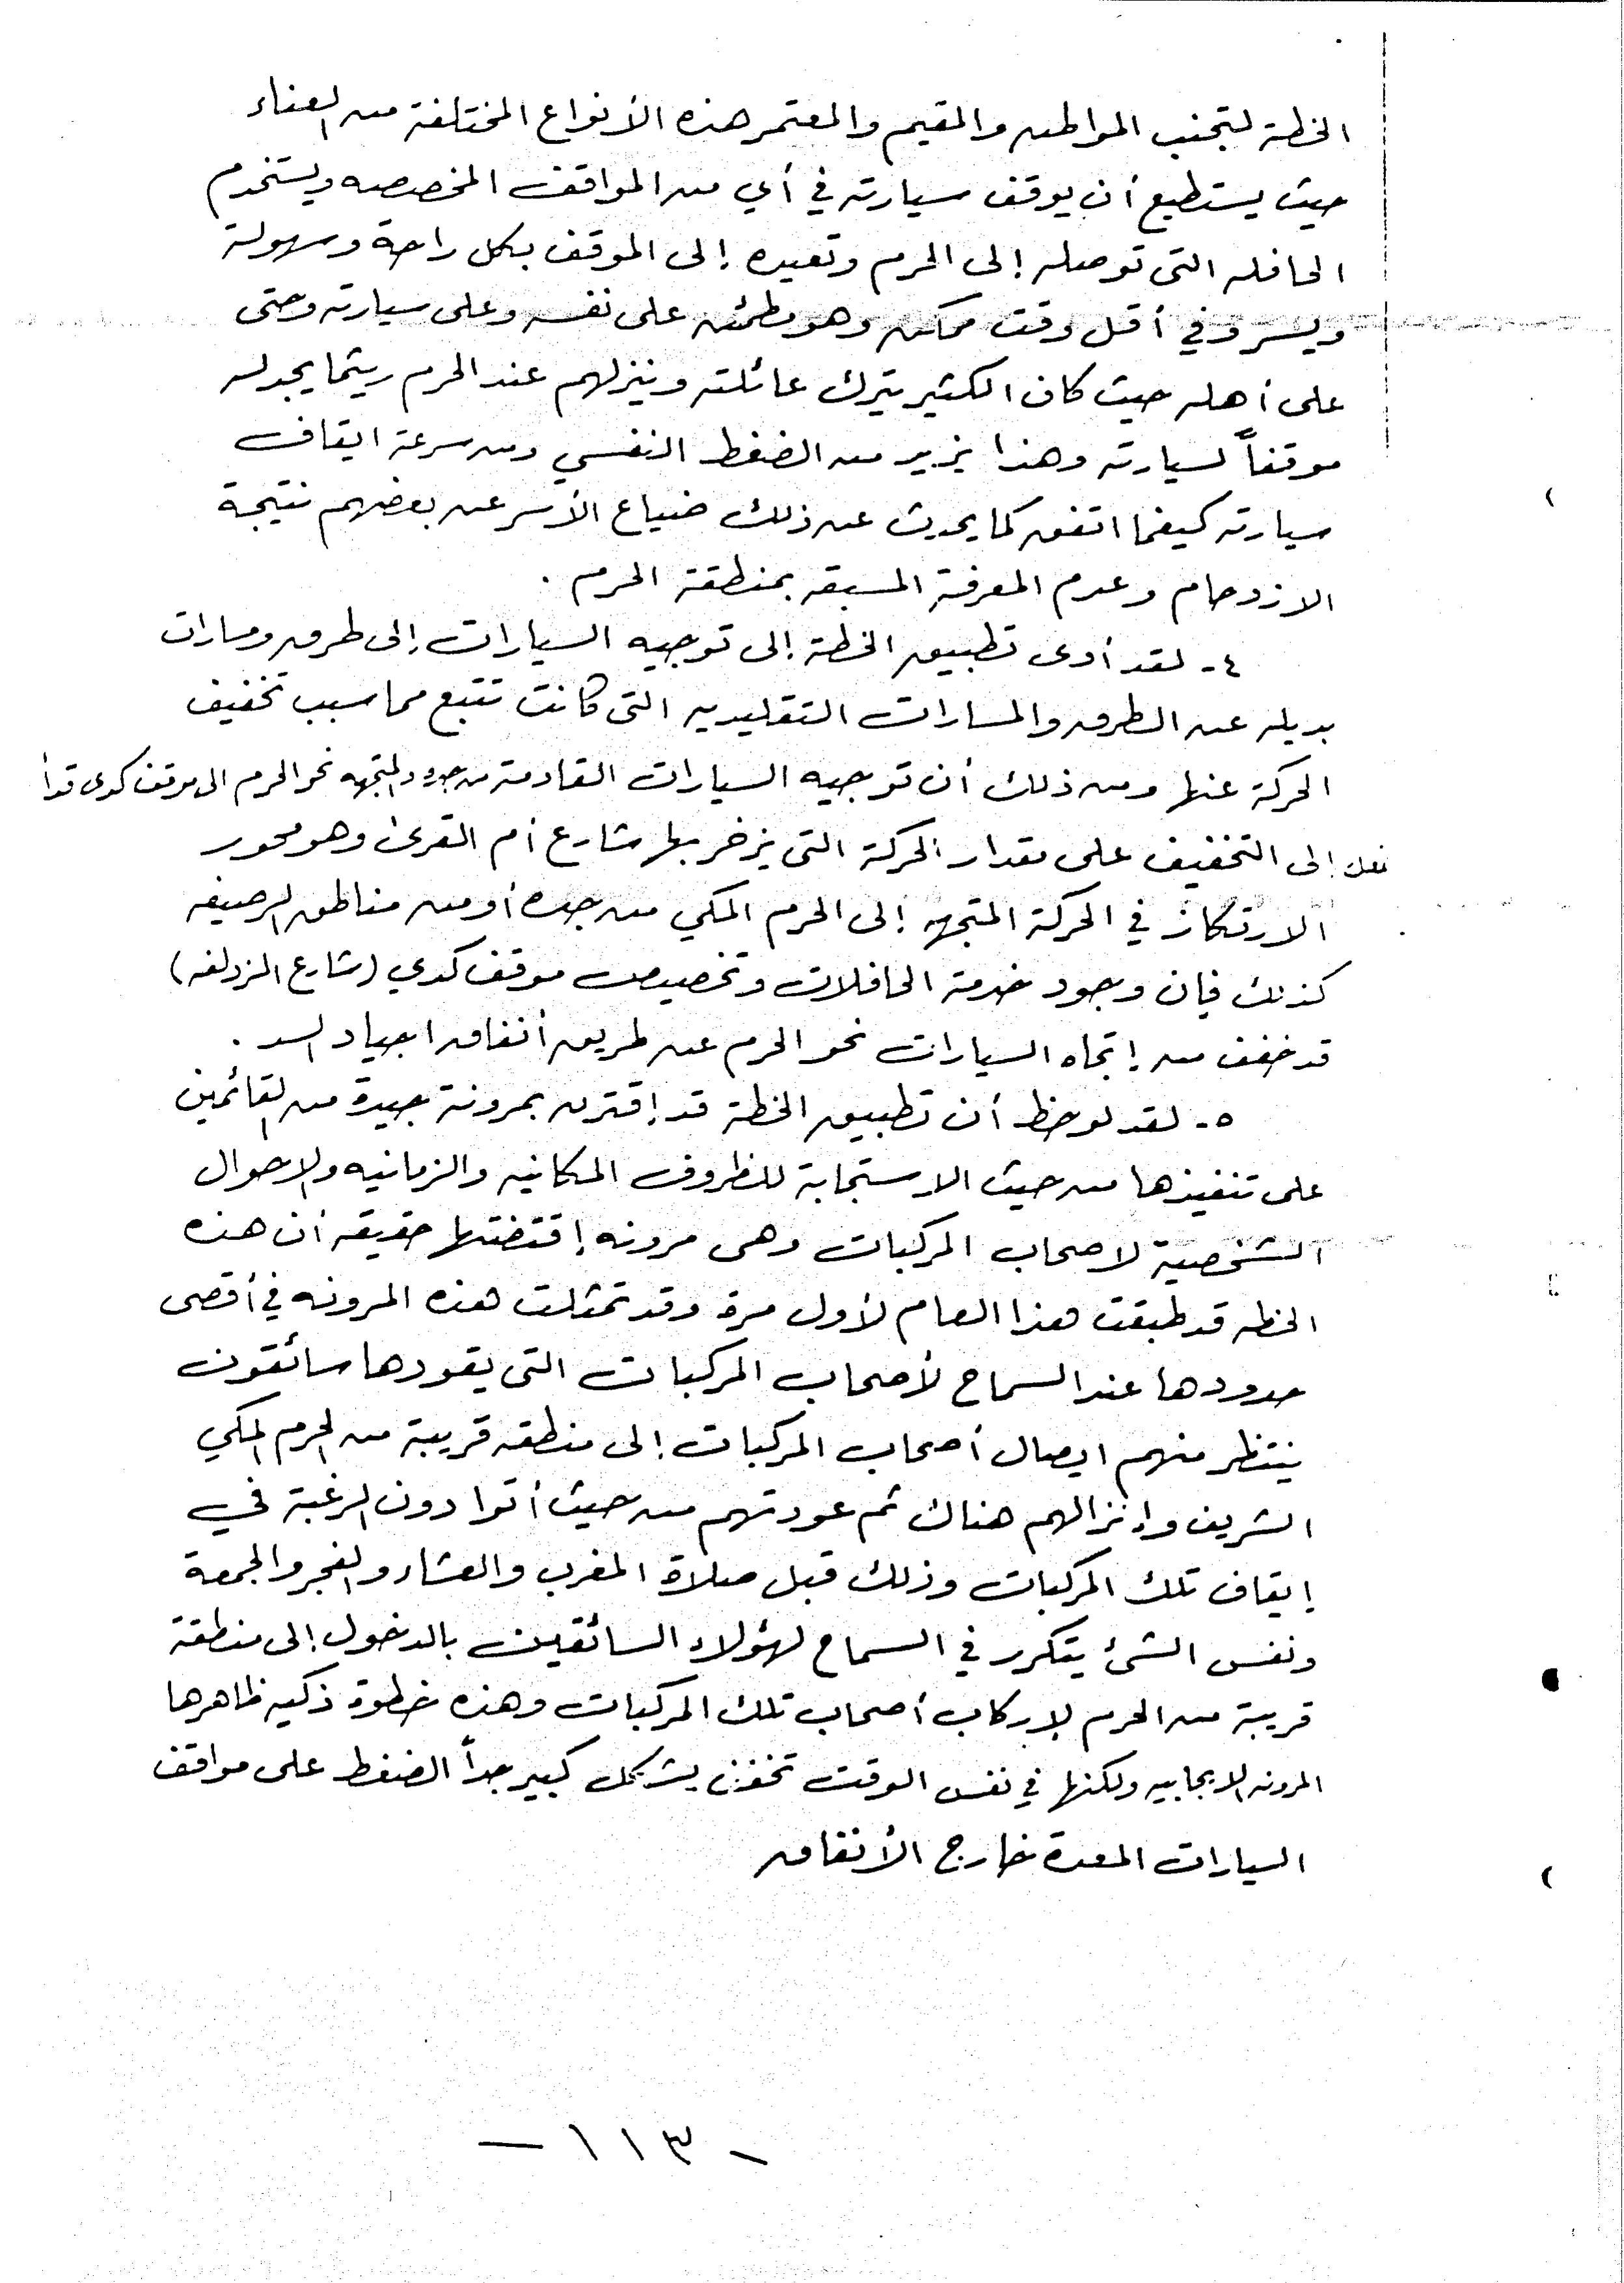 الخطة لتجنب المواطن والمقيم والمعتمر هذه الأنواع المختلفة من العناء
حيث يستطيع أن يوقف سيارته في أي من المواقف المخصصه ويستخدم
الحافله التى توصله إلى الحرم وتعيده إلى الموقف بكل راحة وسهولة
ويسر وفي أقل وقت ممكن وهو مطمئن على نفسه وعلى سيارته وحتى
على أهله حيث كان الكثير يترك عائلته وينزلهم عند الحرم ريثما يجد له
موقفاً لسيارته وهذا يزيد من الضغط النفسي ومن سرعة ايقاف
سيارته كيفما اتفق كما يحدث عن ذلك ضياع الأسر عن بعضهم نتيجة
الازدحام وعدم المعرفة المسبقه بمنطقة الحرم .
٤- لقد أدى تطبيق الخطة إلى توجيه السيارات إلى طرق ومسارات
بديله عن الطرق والمسارات التقليديه التى كانت تتبع مما سبب تخفيف
الحركة عنها ومن ذلك أن توجيه السيارات القادمة من جده والمتجهه نحو الحرم الى موقف كدى قد أدى
فعلا إلى التخفيف على مقدار الحركة التى يزخر بها شارع أم القرى وهو محور
الارتكاز في الحركة المتجهه إلى الحرم المكي من جده أو من مناطق الرصيفه
كذلك فإن وجود خدمة الحافلات وتخصيص موقف كدي (شارع المزدلفه)
قد خفف من إتجاه السيارات نحو الحرم عن طريق أنفاق اجياد السد .
٥- لقد لوحظ أن تطبيق الخطة قد إقترن بمرونة جيدة من القائمين
على تنفيذها من حيث الاستجابة للظروف المكانيه والزمانيه والاحوال
الشخصية لاصحاب المركبات وهى مرونه إقتضتها حقيقه أن هذه
الخطه قد طبقت هذا العام لأول مرة وقد تمثلت هذه المرونه في أقصى
حدودها عند السماح لأصحاب المركبات التى يقودها سائقون
ينتظر منهم ايصال أصحاب المركبات إلى منطقه قريبة من الحرم المكي
الشريف وإنزالهم هناك ثم عودتهم من حيث أتوا دون الرغبة في
إيقاف تلك المركبات وذلك قبل صلاة المغرب والعشاء والفجر والجمعة
ونفس الشئ يتكرر في السماح لهؤلاء السائقين بالدخول إلى منطقة
قريبة من الحرم لإركاب أصحاب تلك المركبات وهذه خطوة ذكيه ظاهرها
المرونه الايجابيه ولكنها في نفس الوقت تخفف بشكل كبير جداً الضغط على مواقف
السيارات المعدة خارج الأنفاق
- ١١٣ -